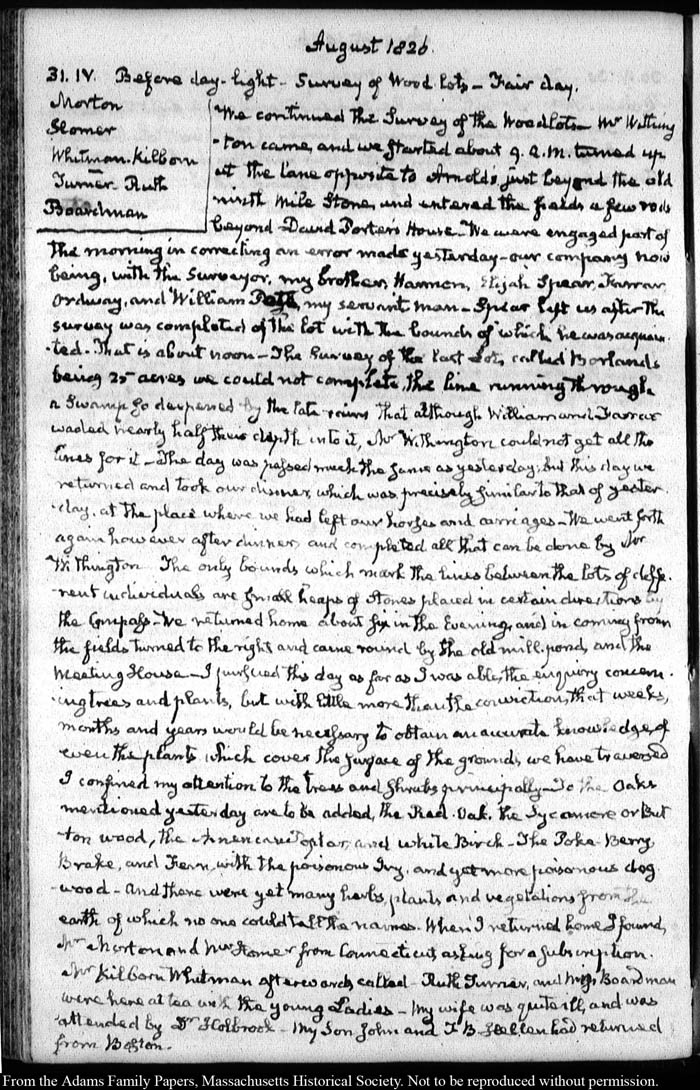 August 1826.
31. IV. Before day-light - Survey of Wood lots - Fair day.
Morton
Homer
Whitman. Kilborn
Turner. Ruth
Boardman
We continued the Survey of the Woodlots - Mr Withing
-ton came, and we started about 9. A.M. turned up
at the lane opposite to Arnolds, just beyond the old
ninth Mile Stone, and entered the fields a few rods
beyond David Porter's House - We were engaged part of
the morning in correcting an error made yesterday - our company now
being, with the Surveyor, my brother, Harmon, Elijah Spear, Farrar,
Ordway, and William my servant man - Spear left us after the
survey was completed of the lot with the bounds of which he was acquain
-ted - That is about noon - The Survey of the last Lot, called Borlands
being 25 acres we could not complete, the line running through
a Swamp so deepened by the late rains that although William and Farrar
waded nearly half their depth into it, Mr Withington could not get all the
lines for it - The day was passed much the same as yesterday; but this day we
returned and took our dinner, which was precisely similar to that of yester
-day, at the place where we had left our horses and carriages - We went forth
again however after dinner, and completed all that can be done by Mr
Withington The only bounds which mark the lines between the lots of diffe
-rent individuals are small heaps of stones placed in certain directions by
the Compass - We returned home about six in the Evening, and in coming from
the fields turned to the right and came round by the old mill-pond, and the
Meeting House - I pursued this day as far as I was able, the enquiry concern-
-ing trees and plants, but with little more than the conviction, that weeks,
months and years would be necessary to obtain an accurate knowledge, of
even the plants which cover the surface of the grounds, we have traversed
I confined my attention to the trees and shrubs principally - To the Oaks
mentioned yesterday are to be added, the Red Oak, the Sycamore or But
-ton wood, the American Poplar, and white Birch - The Poke-Berry,
Brake, and Fern, with the poisonous Ivy, and yet more poisonous dog-
-wood - And there were yet many herbs, plants and vegetations from the
earth of which no one could tell the names. When I returned home I found,
Mr Morton and Mr Homer from Connecticut asking for a subscription.
Mr Kilborn Whitman afterwards called - Ruth Turner, and Miss Boardman
were here at tea with the young Ladies - My wife was quite ill, and was
attended by Dr Holbrook - My Son John and T. B. had returned
from Boston.
From the Adams Family Papers, Massachusetts Historical Society. Not to be reproduced without permission.